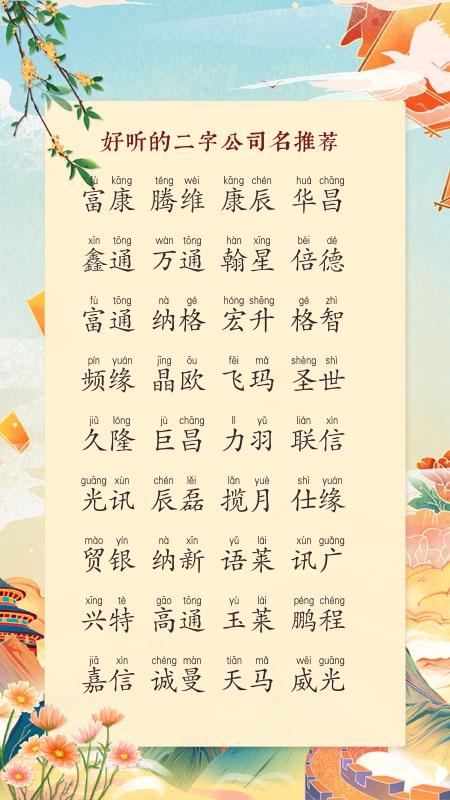 好听的二字公司名推荐
fù kāng téng wéi kāng chén huá chāng
富康 腾维 康辰 华昌
xīn tōng wàn tōng hàn xīng bèi dé
鑫通 万通 翰星 倍德
fù tōng nà gé hóng shēng gé zhì
富通 纳格 宏升 格智
pín yuán jīng ōu fēi mǎ shèng shì
频缘 晶欧 飞玛 圣世
jiǔ lóng jù chāng lì yǔ lián xìn
久隆 巨昌 力羽 联信
guāng xùn chén lěi lǎn yuè shì yuán
光讯 辰磊 揽月 仕缘
mào yín nà xīn yǔ lái xùn guǎng
贸银 纳新 语莱 讯广
xīng tè gāo tōng yù lái péng chéng
兴特 高通 玉莱 鹏程
jiā xìn chéng màn tiān mǎ wēi guāng
嘉信 诚曼 天马 威光